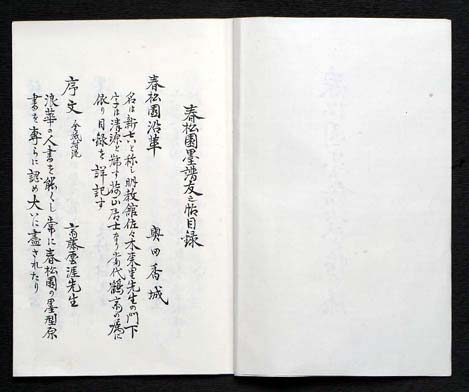 春松園墨譜友之帖目録
春松園沿革 奥田香城
名は新七と称し明教館佐々木東里先生の門下
字は清源と号す 居士なり当代鶴斎の嘱に
依り目録を詳記す
序文 斎藤雲涯先生
浪華の人書を能くし常に春松園の墨型原
書を 専らに認め大いに盡されたり